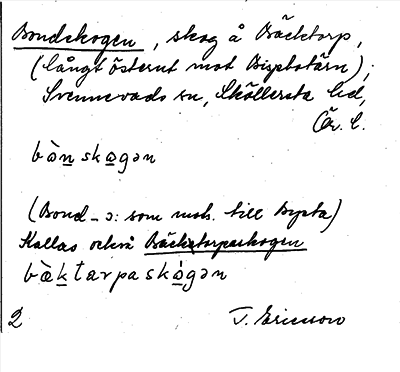 Bondskogen, skog å Bäcktorp,
(långt österut mot Bysta);
Svennevads sn, Sköllersta hd,
Ör. l.
bὸn̲sko̲gən
(Bond- ɔ: som mots. till Bysta)
Kallas också Bäcktorpaskogen
bὰk̲tɑrpaskὸ̲gən
2 T. Ericsson